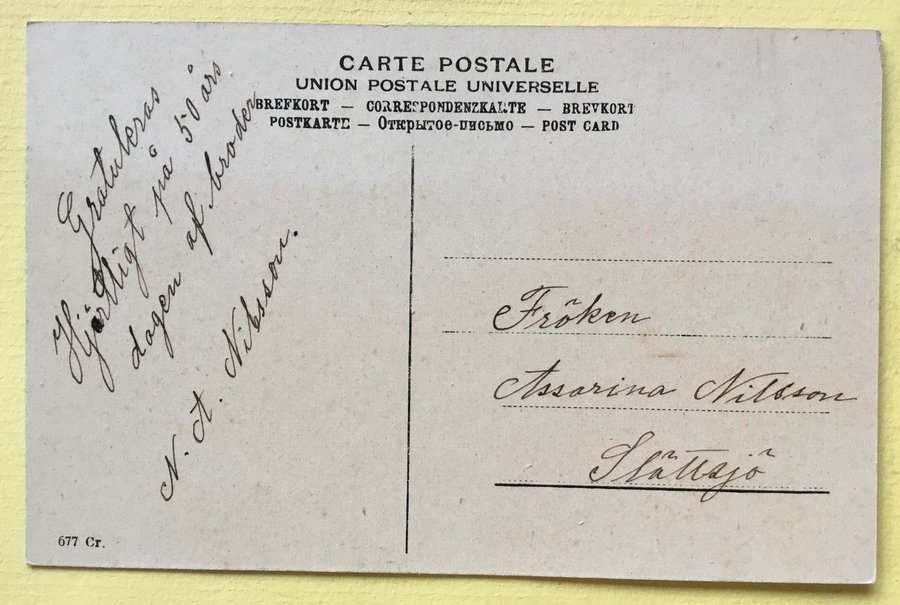 CARTE POSTALE
UNION POSTALE UNIVERSELLE
BREFKORT — CORRESPONDENZKARTE — BREVKORT
POSTKARTE — Открытое-письмо — POST CARD
Gratuleras
Hjärtligt på 50 års
dagen af broder
N. A. Nilsson.
Fröken
Assarina Nilsson
Slättsjö
677 Cr.